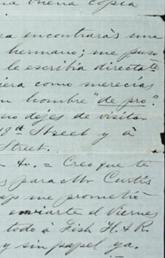 una buena copia
encontrarás una
hermano; me puso
le escribia directa
iera como merecias
un hombre de pro
no dejes de visitar
Street y á
Street.
Creo que te
para Mr Curtis
me prometió
enviarte el Viernes
todo á Fish H. & R.
y sin papel ya.